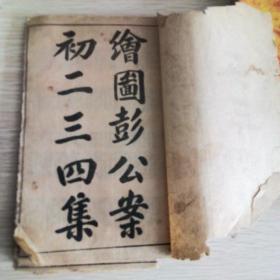 繪圖彭公案
初二三四集